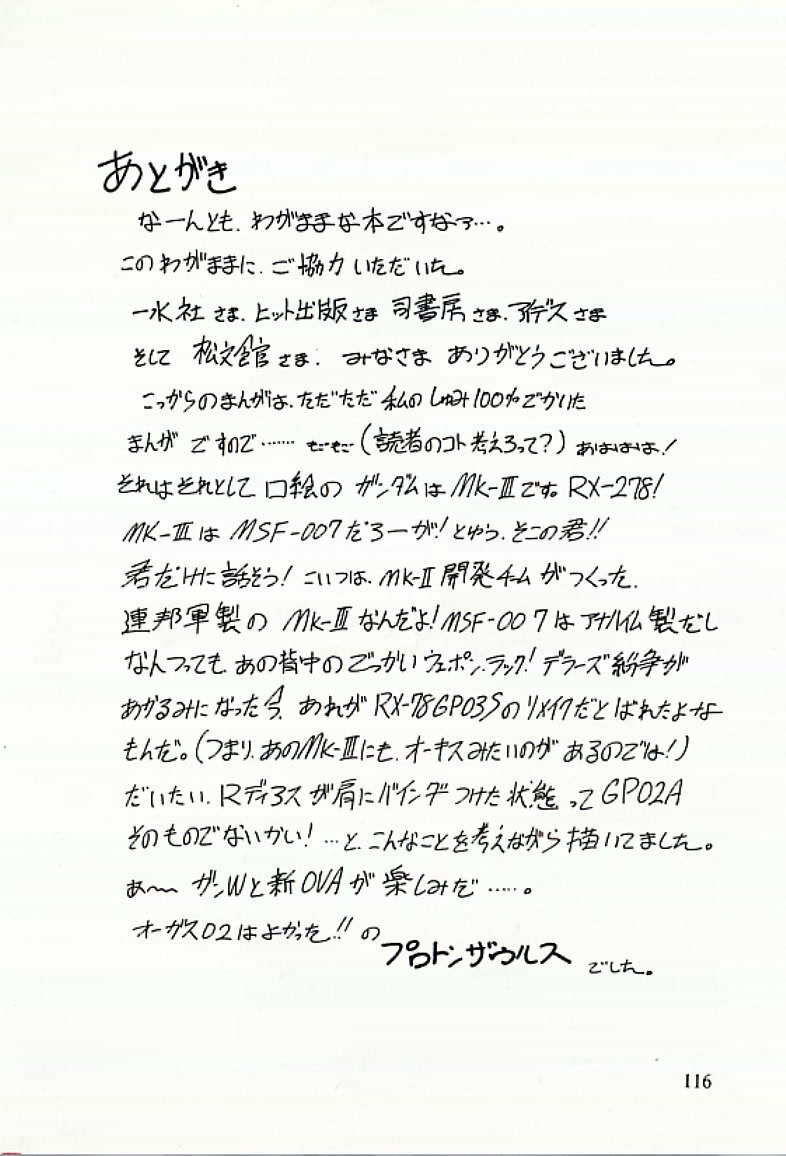 あとがき
なーんとも、わがままな本ですなァ…。
このわがままに、ご協力いただいた。
一水社さま、ヒット出版さま 司書房さま、アイデスさま
そして 松文館さま、みなさま ありがとうございました。
こっからのまんがは、ただただ 私のしゅみ100%でかいた
まんが ですので…… もごもご(読者のコト考えろって?) あははは!
それはそれとして 口絵の ガンダムは MK-Ⅲです。 RX-278!
MK-Ⅲは MSF-007だろーが! とゆう、そこの君!!
君だけに話そう! こいつは、MK-Ⅱ 開発チームがつくった、
連邦軍製の MK-Ⅲなんだよ! MSF-007は アナハイム製だし
なんつっても、あの背中の ごっかい ウェポン、ラック! デラーズ紛争が
あかるみになった今、あれが RX-78GP03Sのリメイクだとばれたよーな
もんだ。(つまり、あのMK-Ⅲにも、オーキスみたいのが あるのでは!)
だいたい、Rディアスが肩にバインダつけた状態って GP02A
そのものでないかい! …と、こんなことを考えながら描いてました。
あ～～ ガンWと新OVAが 楽しみだ……。
オーガス02はよかった!! の
プロトンザウルス でした。
116